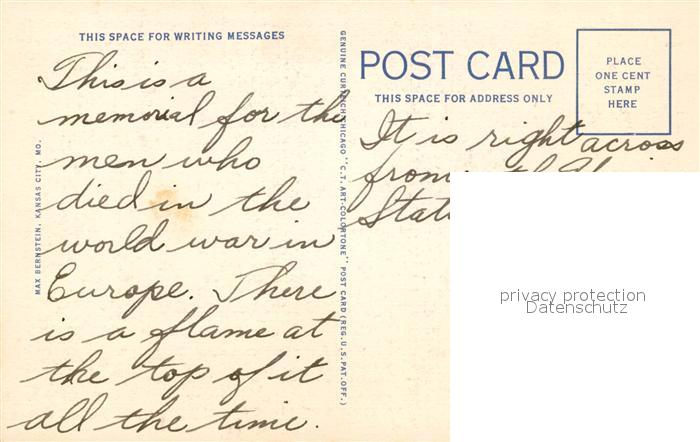 THIS SPACE FOR WRITING MESSAGES
This is a
memorial for the
men who
died in the
world war in
Europe. There
is a flame at
the top of it
all the time.
MAX BERNSTEIN, KANSAS CITY, MO.
GENUINE CURTEICH-CHICAGO "C.T. ART-COLORTONE" POST CARD (REG. U.S. PAT. OFF.)
POST CARD
THIS SPACE FOR ADDRESS ONLY
PLACE
ONE CENT
STAMP
HERE
It is right across
from
privacy protection
Datenschutz